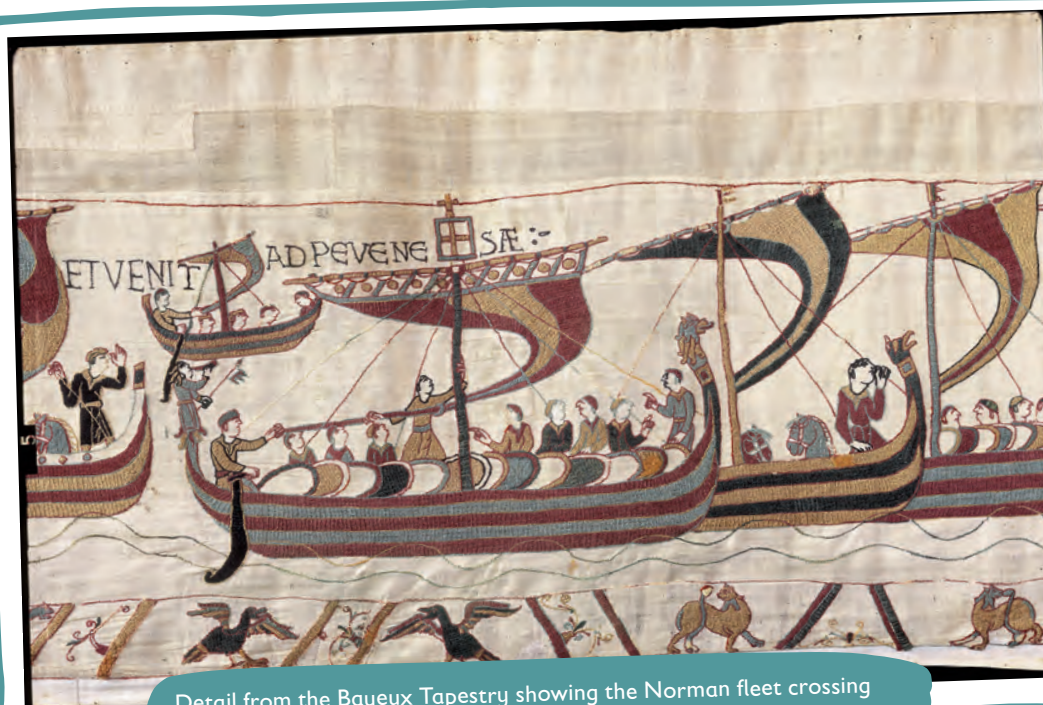 ET VENIT AD PEVENE SÆ :-
5
Detail from the Bayeux Tapestry showing the Norman fleet crossing